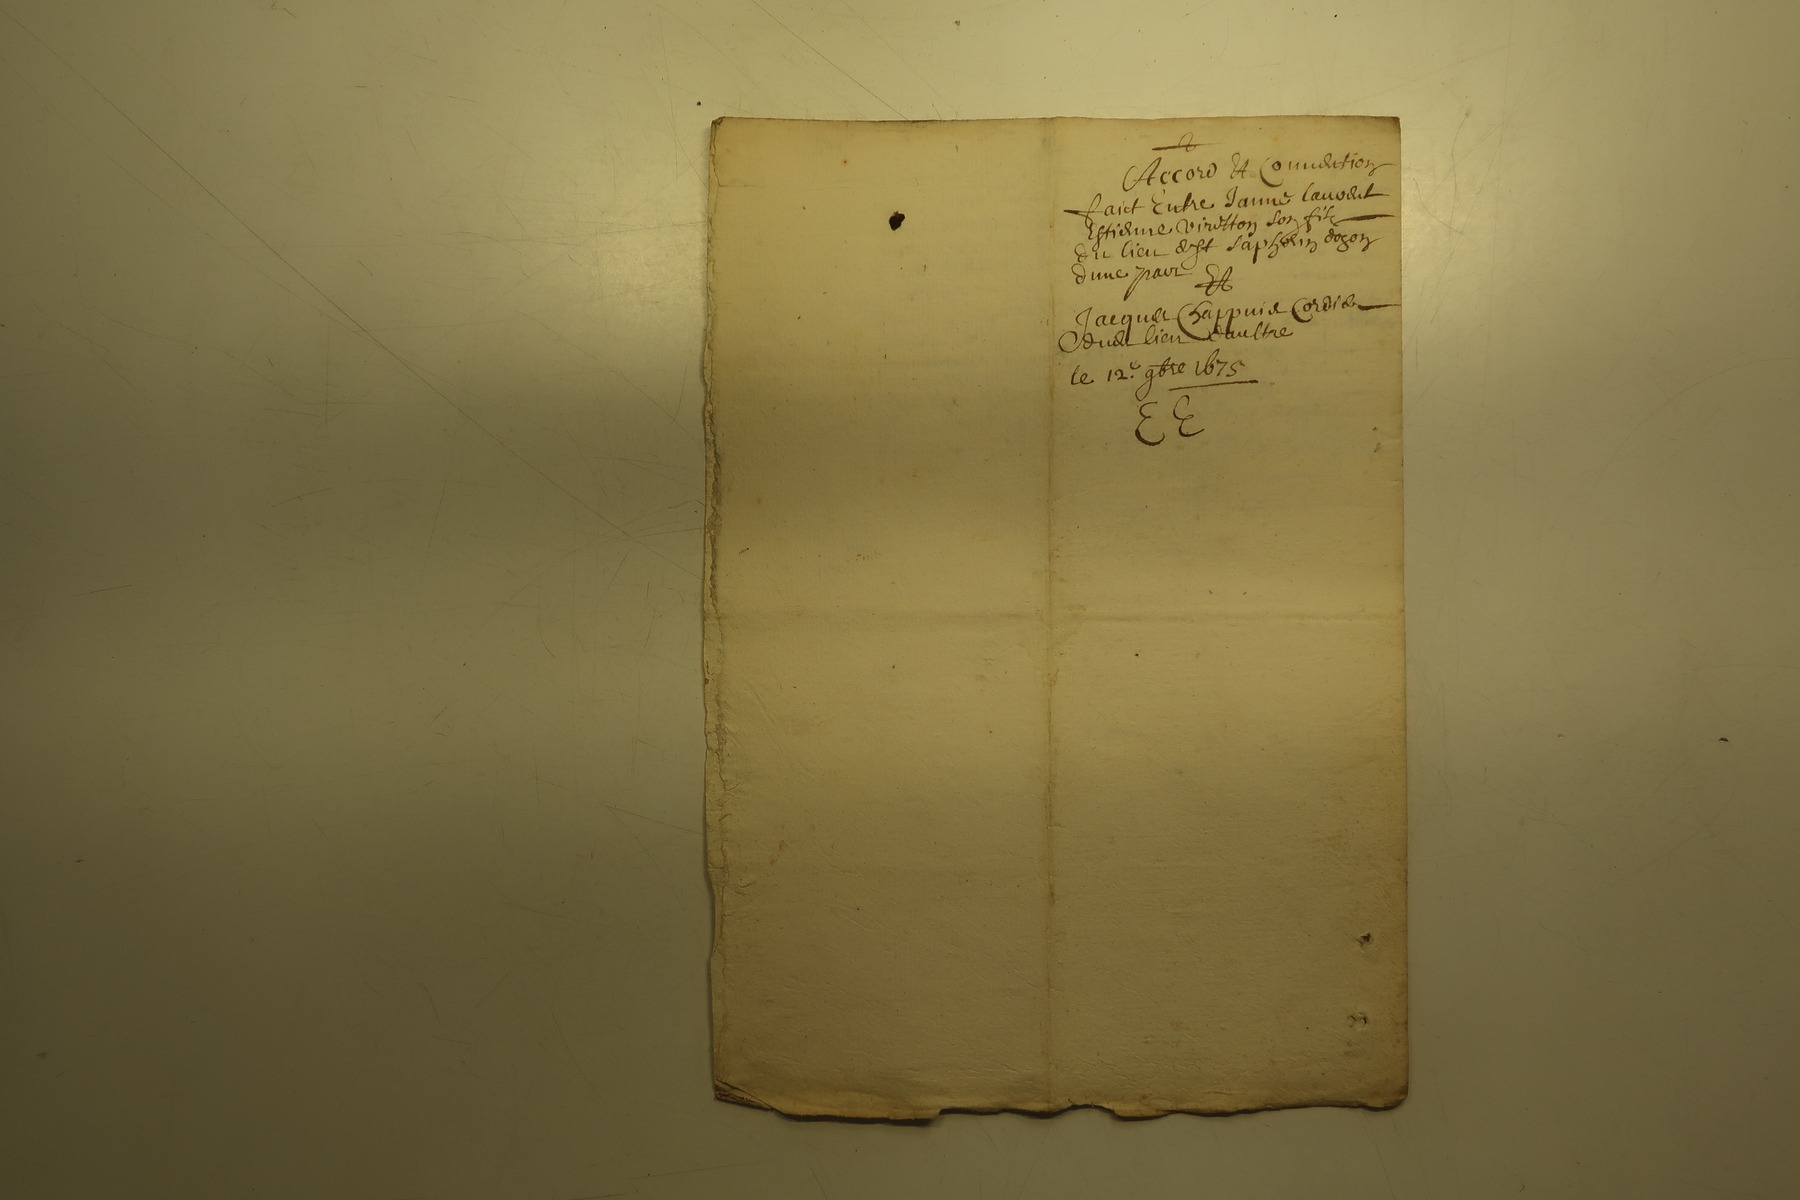 Accord Et Connvention
faict Entre Janne lauvdet
Estienne viretton son filz
du lieu de st saphorin dozon
dune part Et
Jacques Chappuis Cordier
dudt lieu daultre
le 12e 9bre 1675
EE